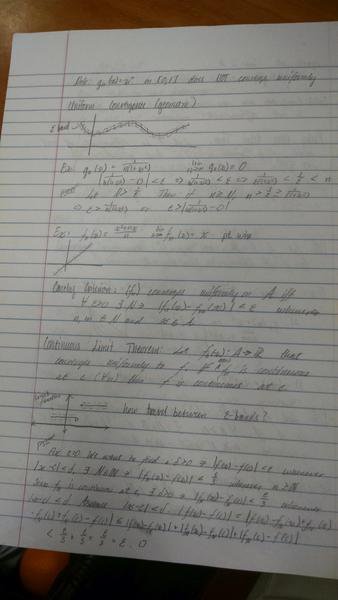 Note: gₙ(x)=xⁿ on [0,1] does NOT converge uniformly
Uniform Convergence (geometric)
ε band
Ex: gₙ(x) = 1/n(1+x²) lim gₙ(x) = 0
|1/n(1+x²) - 0| < ε ⇒ 1/n(1+x²) < ε ⇒ 1/ε(1+x²) < 1/ε < n
Let N > 1/ε. Then if n ≥ N, n > 1/ε ≥ 1/ε(1+x²)
⇒ ε > 1/n(1+x²) or ε > |1/n(1+x²) - 0|
Ex: fₙ(x) = x²+nx/n lim fₙ(x) = x pt wise
Cauchy Criterion: (fₙ) converges uniformly on A iff
∀ ε>0 ∃ N ∋ |fₙ(x) - fₘ(x)| < ε whenever
n, m ≥ N and x ∈ A
Continuous Limit Theorem: Let fₙ(x): A→ℝ that
converge uniformly to f. If each fₙ is continuous
at c (∀n) then f is continuous at c
how bound between ε-bands?
proof
Fix ε>0. We want to find a δ>0 ∋ |f(x)-f(c)| < ε whenever
|x-c| < δ. ∃ N∈ℕ ∋ |fₙ(x)-f(x)| < ε/3 whenever n ≥ N
Since fₙ is continuous at c, ∃ δ>0 ∋ |fₙ(x)-fₙ(c)| < ε/3 whenever
|x-c| < δ. |x-c| < δ, |f(x)-f(c)| = |f(x)-fₙ(x)+fₙ(x)
-fₙ(c)+fₙ(c)-f(c)| ≤ |f(x)-fₙ(x)| + |fₙ(x)-fₙ(c)| + |fₙ(c)-f(c)|
< ε/3 + ε/3 + ε/3 = ε. □